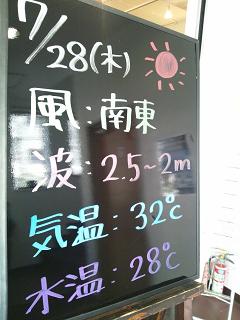 7/28(木)
風:南東
波:2.5~2m
気温:32℃
水温:28℃